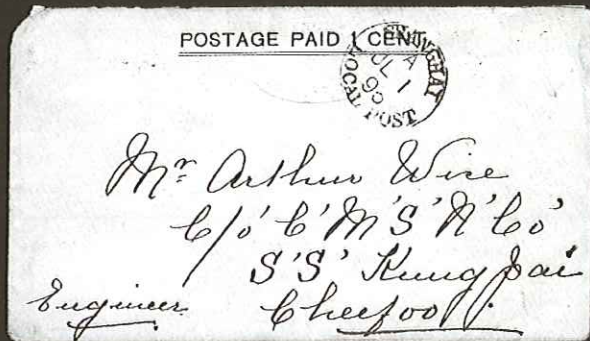 POSTAGE PAID 1 CENT
SHANGHAI
A
JL 1
95
LOCAL POST
Mr Arthur Wise
C/o' C' M' S' N' Co'
S'S' Kung pai
Engineer Cheefoo